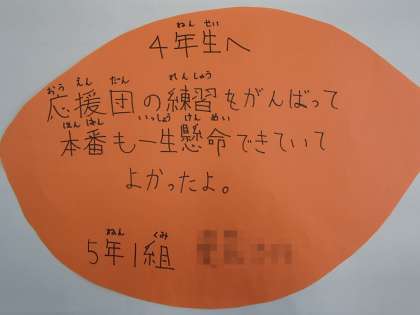 ４年生へ
応援団の練習をがんばって
本番も一生懸命できていて
よかったよ。
５年１組